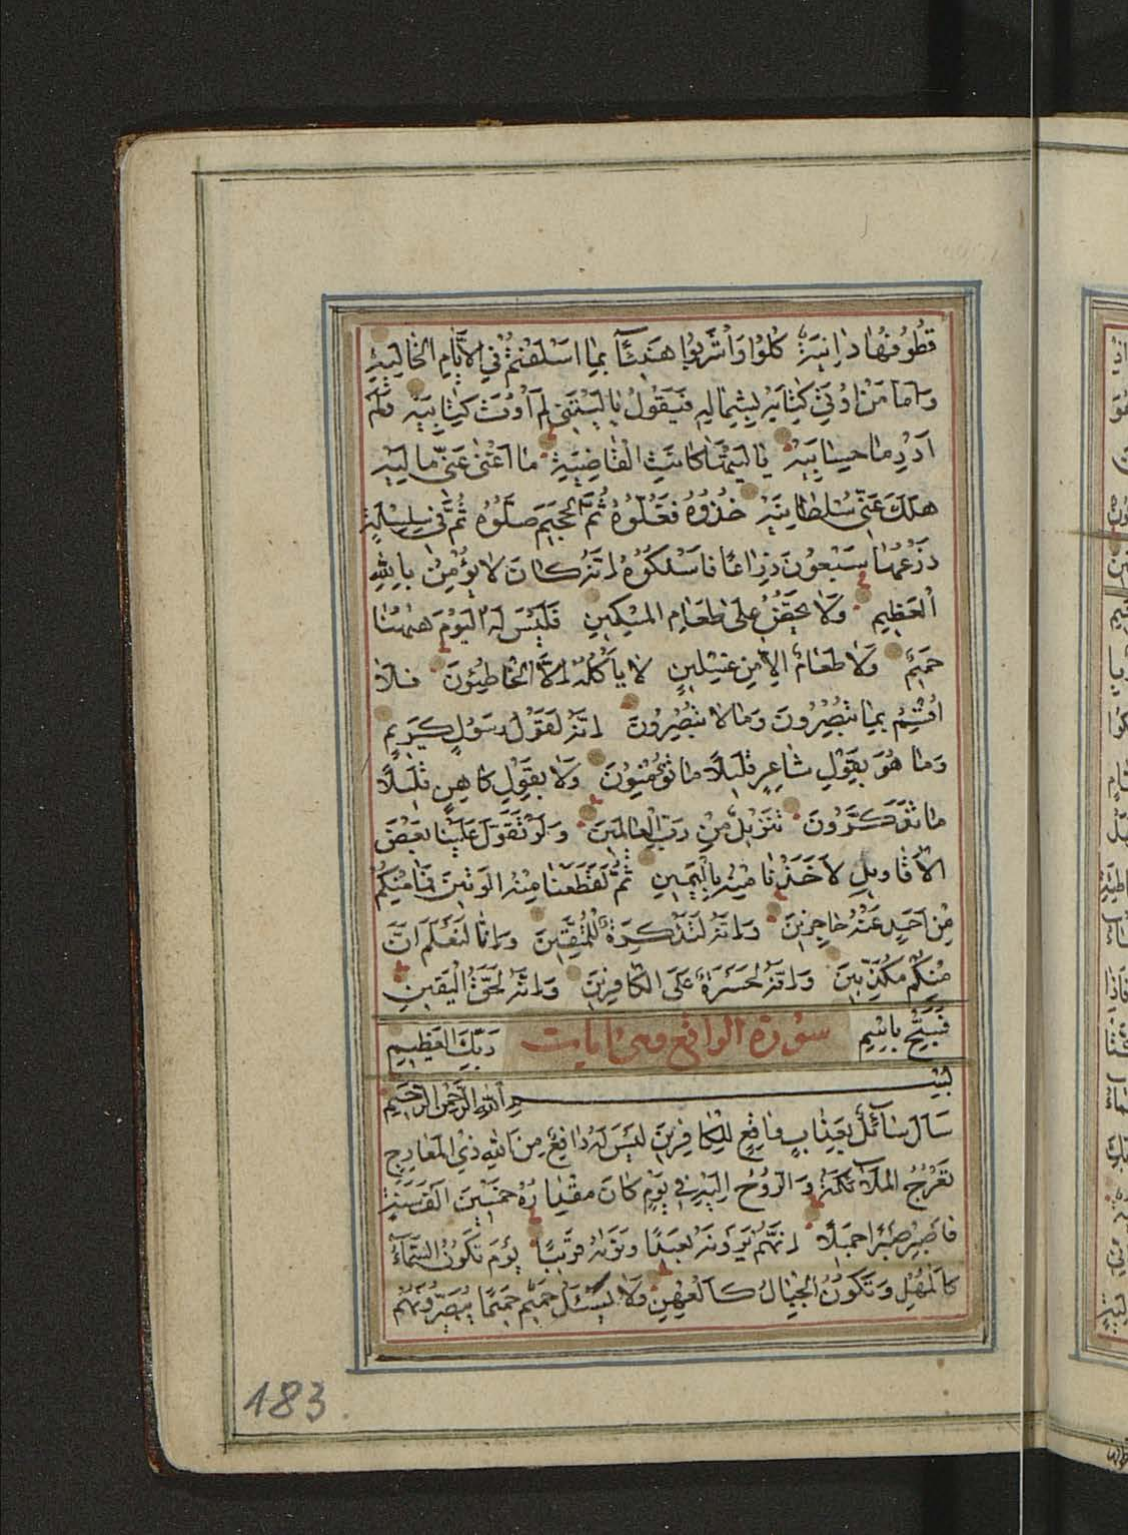 قُطُوفُهَا دَانِيَةٌ كُلُوا وَاشْرَبُوا هَنِيئًا بِمَا اَسْلَفْتُمْ فِي الْاَيَّامِ الْخَالِيَةِ
وَاَمَّا مَنْ اُوتِيَ كِتَابَهُ بِشِمَالِهِ فَيَقُولُ يَا لَيْتَنِي لَمْ اُوتَ كِتَابِيَهْ وَلَمْ
اَدْرِ مَا حِسَابِيَهْ يَا لَيْتَهَا كَانَتِ الْقَاضِيَةِ مَا اَغْنٰى عَنِّي مَالِيَهْ
هَلَكَ عَنِّي سُلْطَانِيَهْ خُذُوهُ فَغُلُّوهُ ثُمَّ الْجَحِيمَ صَلُّوهُ ثُمَّ فِي سِلْسِلَةٍ
ذَرْعُهَا سَبْعُونَ ذِرَاعًا فَاسْلُكُوهُ اِنَّهُ كَانَ لَا يُؤْمِنُ بِاللّٰهِ
الْعَظِيمِ وَلَا يَحُضُّ عَلَى طَعَامِ الْمِسْكِينِ فَلَيْسَ لَهُ الْيَوْمَ هٰهُنَا
حَمِيمٌ وَلَا طَعَامٌ اِلَّا مِنْ غِسْلِينٍ لَا يَأْكُلُهُ اِلَّا الْخَاطِئُونَ فَلَا
اُقْسِمُ بِمَا تُبْصِرُونَ وَمَا لَا تُبْصِرُونَ اِنَّهُ لَقَوْلُ رَسُولٍ كَرِيمٍ
وَمَا هُوَ بِقَوْلِ شَاعِرٍ قَلِيلًا مَا تُؤْمِنُونَ وَلَا بِقَوْلِ كَاهِنٍ قَلِيلًا
مَا تَذَكَّرُونَ تَنْزِيلٌ مِنْ رَبِّ الْعَالَمِينَ وَلَوْ تَقَوَّلَ عَلَيْنَا بَعْضَ
الْاَقَاوِيلِ لَاَخَذْنَا مِنْهُ بِالْيَمِينِ ثُمَّ لَقَطَعْنَا مِنْهُ الْوَتِينَ فَمَا مِنْكُمْ
مِنْ اَحَدٍ عَنْهُ حَاجِزِينَ وَاِنَّهُ لَتَذْكِرَةٌ لِلْمُتَّقِينَ وَاِنَّا لَنَعْلَمُ اَنَّ
مِنْكُمْ مُكَذِّبِينَ وَاِنَّهُ لَحَسْرَةٌ عَلَى الْكَافِرِينَ وَاِنَّهُ لَحَقُّ الْيَقِينِ
فَسَبِّحْ بِاسْمِ سورة الواقع رَبِّكَ الْعَظِيمِ
بِسْمِ اللّٰهِ الرَّحْمٰنِ الرَّحِيمِ
سَاَلَ سَآئِلٌ بِعَذَابٍ وَاقِعٍ لِلْكَافِرِينَ لَيْسَ لَهُ دَافِعٌ مِنَ اللّٰهِ ذِي الْمَعَارِجِ
تَعْرُجُ الْمَلَآئِكَةُ وَالرُّوحُ اِلَيْهِ فِي يَوْمٍ كَانَ مِقْدَارُهُ خَمْسِينَ اَلْفَ سَنَةٍ
فَاصْبِرْ صَبْرًا جَمِيلًا اِنَّهُمْ يَرَوْنَهُ بَعِيدًا وَنَرَاهُ قَرِيبًا يَوْمَ تَكُونُ السَّمَآءُ
كَالْمُهْلِ وَتَكُونُ الْجِبَالُ كَالْعِهْنِ وَلَا يَسْئَلُ حَمِيمٌ حَمِيمًا يُبَصَّرُونَهُمْ
183